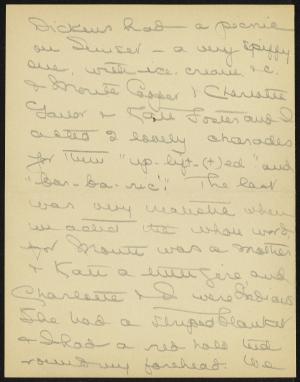 Dickens had a picnic
on Sunset - a very spiffy
one, with ice cream & c.
& Monte Cooper & Charlotte
Gailor & Kate Foster and I
acted 2 lovely charades
for them "up-lift-(+)ed" and
"bar-ba-ric!" The last
was very realistic when
we acted the whole word
for Monte was a mother
& Kate a little girl, and
Charlotte & I were Indians
She had a striped blanket
& I had a red hdkf tied
round my forehead. We